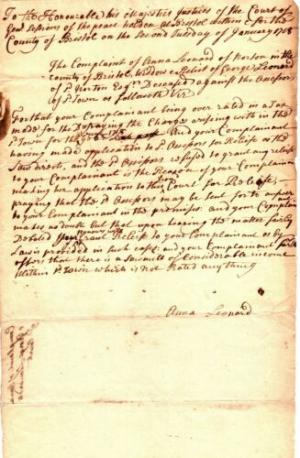 To the Honourable his Majestys Justices of the Court of
Genl Sessions of the peace holden at Bristol within & for the
County of Bristol on the second Tuesday of January 17
The Complaint of Anna Leonard of Norton in the
County of Bristol Widow & Relict of George Leonard
of sd Norton Esqr Deceased against the Assessors
of sd Town as followeth Viz
For that your Complainant being over rated in a Tax
made for the Defraying the Charges arising with in the
sd Town for the And your Complainant
having made application to sd Assessors for Relief as the
Law directs, and the sd Assessors refused to grant any relief
to your Complainant is the Reason of your Complainants
making her application to this Court for Relief,
praying that the sd Assessors may be sent for to answer
to your Complainant in the premises and your Complainant
makes no doubt but that upon hearing the matter fairly
Debated your Honours will grant Relief to your Complainant as by
Law is provided in such case and your Complainant
offers that there is a of Considerable income
Within sd Town which is not Rated any thing
Anna Leonard